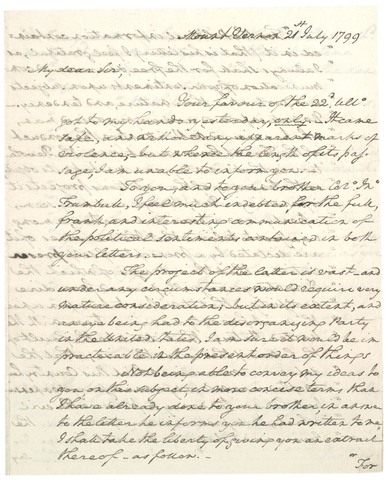 Mount Vernon 21st July 1799
My dear Sir,
Your favour of the 22d. Ulto.
got to my hands yesterday, only. It came
safe, and without any apparent marks of
violence; but whence the length of its pas-
sage, I am unable to inform you.
To you, and to your brother Colo. Jno.
Trumbull, I feel much indebted for the full,
frank, and interesting communication of
the political sentiments contained in both
your letters.
The project of the latter is vast—and
under any circumstances would require very
mature consideration; but in its extent, and
an eye being had to the disorganizing Party
in the United States, I am sure it would be im-
practicable in the present order of things
Not being able to convey my ideas to
you on this subject, in more concise terms than
I have already done to your brother, in answer
to the letter he informs you he had written to me,
I shall take the liberty of giving you an extract
thereof—as follow.—
"For